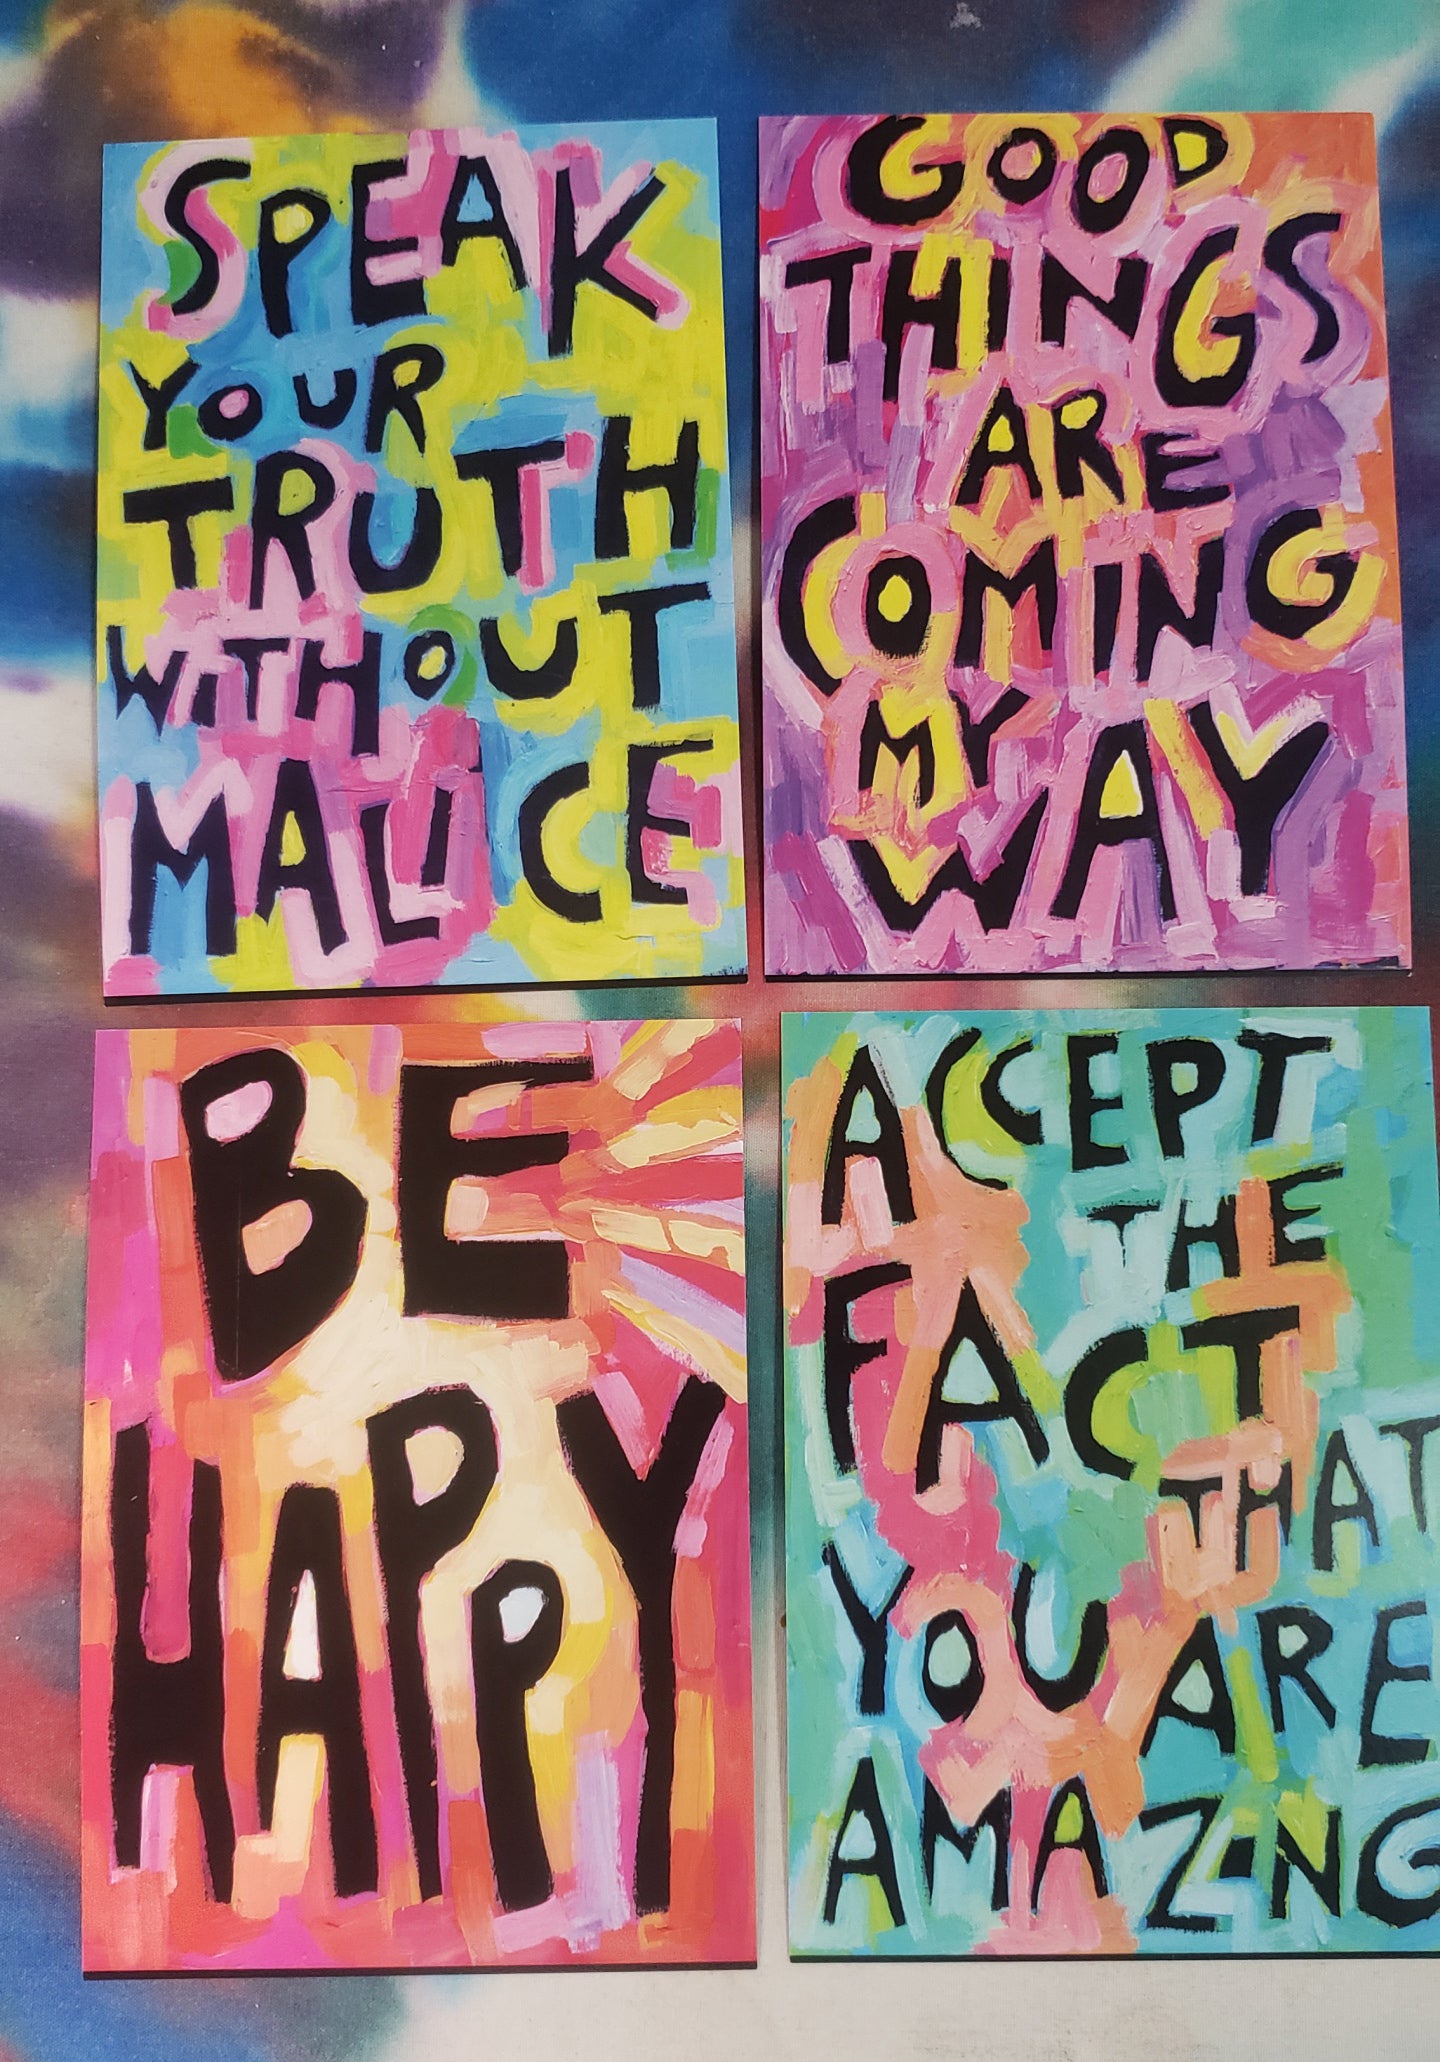 SPEAK
YOUR
TRUTH
WiTHOUT
MALiCE
GOOD
THINGS
ARE
COMING
MY
WAY
BE
HAPPY
ACCEPT
THE
FACT
THAT
YOU ARE
AMAZING